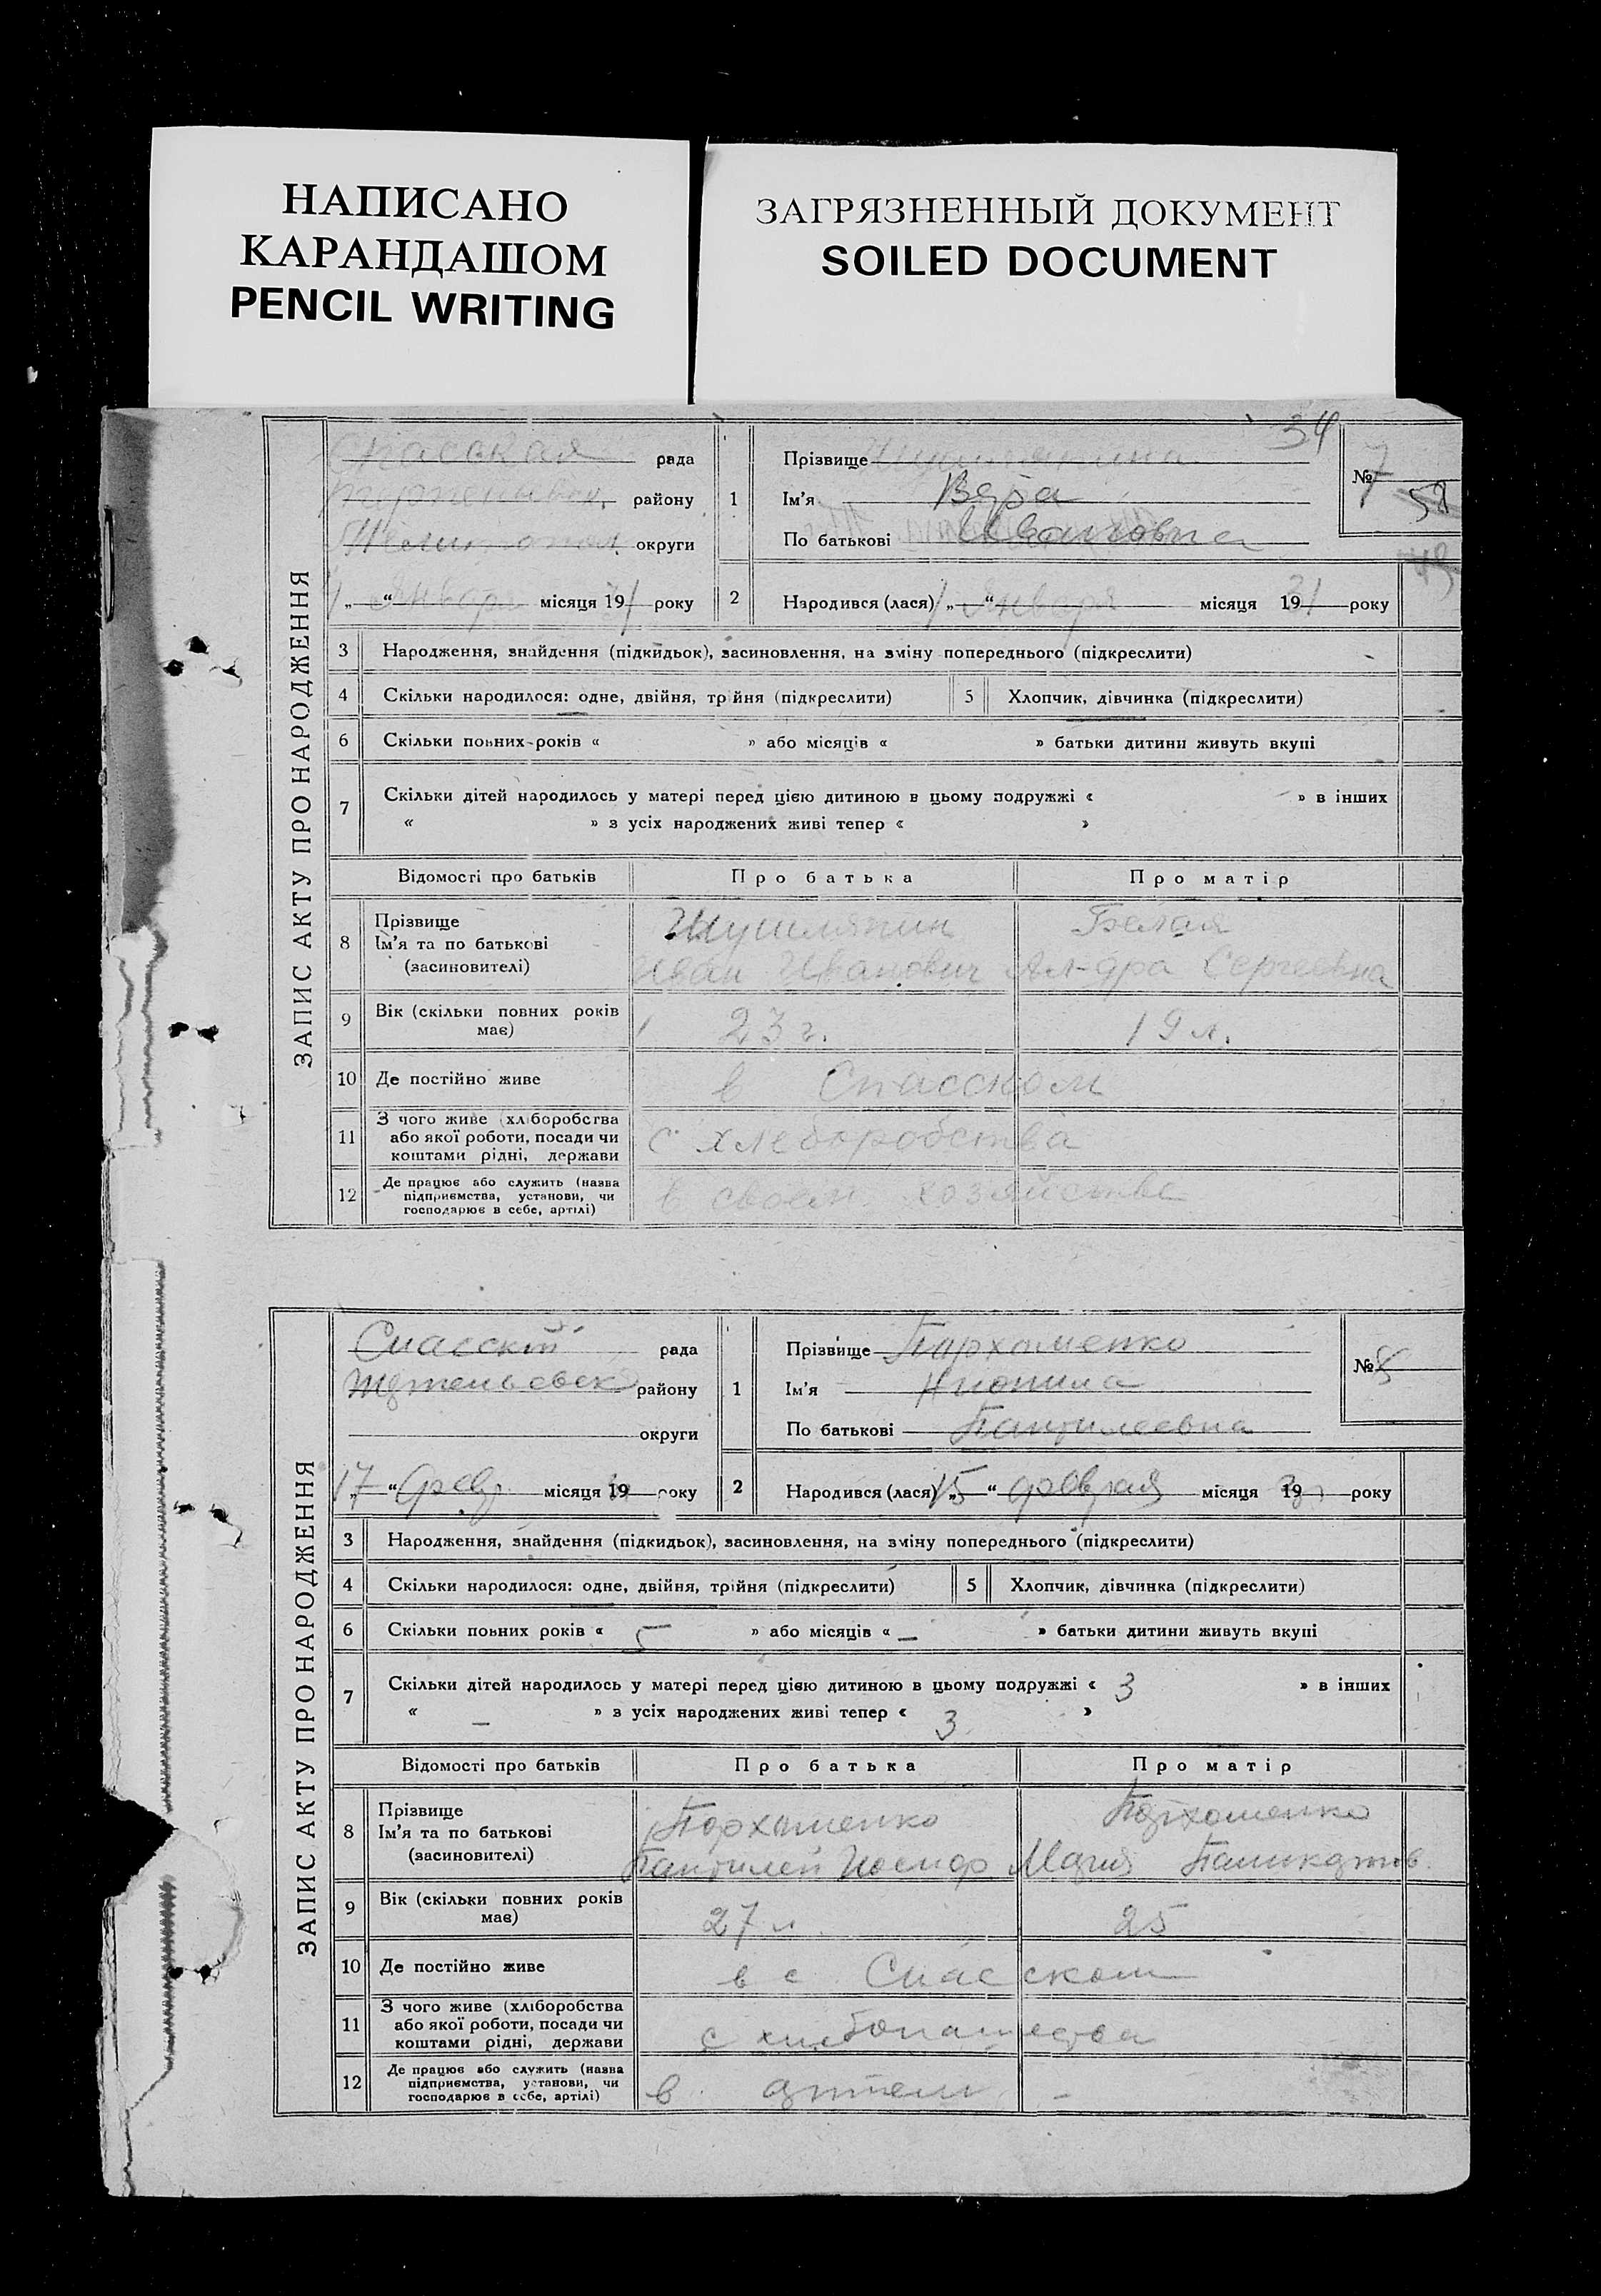 НАПИСАНО
КАРАНДАШОМ
PENCIL WRITING
ЗАГРЯЗНЕННЫЙ ДОКУМЕНТ
SOILED DOCUMENT
34
ЗАПИС АКТУ ПРО НАРОДЖЕННЯ
Спасская рада
району
Мелитопол округи
1 „ “ Января місяця 1931 року
1 Прізвище Шушляпина
Ім’я Вера
По батькові Ивановна
№ 7
58
2 Народився (лася) 1 „ “ Января місяця 1931 року
3 Народження, знайдення (підкидьок), засиновлення, на зміну попереднього (підкреслити)
4 Скільки народилося: одне, двійня, трійня (підкреслити) 5 Хлопчик, дівчинка (підкреслити)
6 Скільки повних років « » або місяців « » батьки дитини живуть вкупі
7 Скільки дітей народилось у матері перед цією дитиною в цьому подружжі « » в інших
« » з усіх народжених живі тепер « »
Відомості про батьків Про батька Про матір
8 Прізвище
Ім’я та по батькові
(засиновителі)
Шушляпин
Иван Иванович
Белая
Ал-дра Сергеевна
9 Вік (скільки повних років має) 23 г. 19 л.
10 Де постійно живе в Спасском
11 З чого живе (хліборобства
або якої роботи, посади чи
коштами рідні, держави
с хлеборобства
12 Де працює або служить (назва
підприємства, установи, чи
господарює в себе, артілі)
в своем хозяйстве
ЗАПИС АКТУ ПРО НАРОДЖЕННЯ
Спасскій рада
району
округи
17 „ “ февр місяця 19 року
1 Прізвище Пархоменко
Ім’я
По батькові Пантилеевна
№ 8
2 Народився (лася) 15 „ “ февраля місяця 1931 року
3 Народження, знайдення (підкидьок), засиновлення, на зміну попереднього (підкреслити)
4 Скільки народилося: одне, двійня, трійня (підкреслити) 5 Хлопчик, дівчинка (підкреслити)
6 Скільки повних років « 5 » або місяців « – » батьки дитини живуть вкупі
7 Скільки дітей народилось у матері перед цією дитиною в цьому подружжі « 3 » в інших
« – » з усіх народжених живі тепер « 3 »
Відомості про батьків Про батька Про матір
8 Прізвище
Ім’я та по батькові
(засиновителі)
Пархоменко
Пантилей Иосиф
Пархоменко
Мария
9 Вік (скільки повних років має) 27 л. 25
10 Де постійно живе в с Спасском
11 З чого живе (хліборобства
або якої роботи, посади чи
коштами рідні, держави
с хлебопашества
12 Де працює або служить (назва
підприємства, установи, чи
господарює в себе, артілі)
в артели –